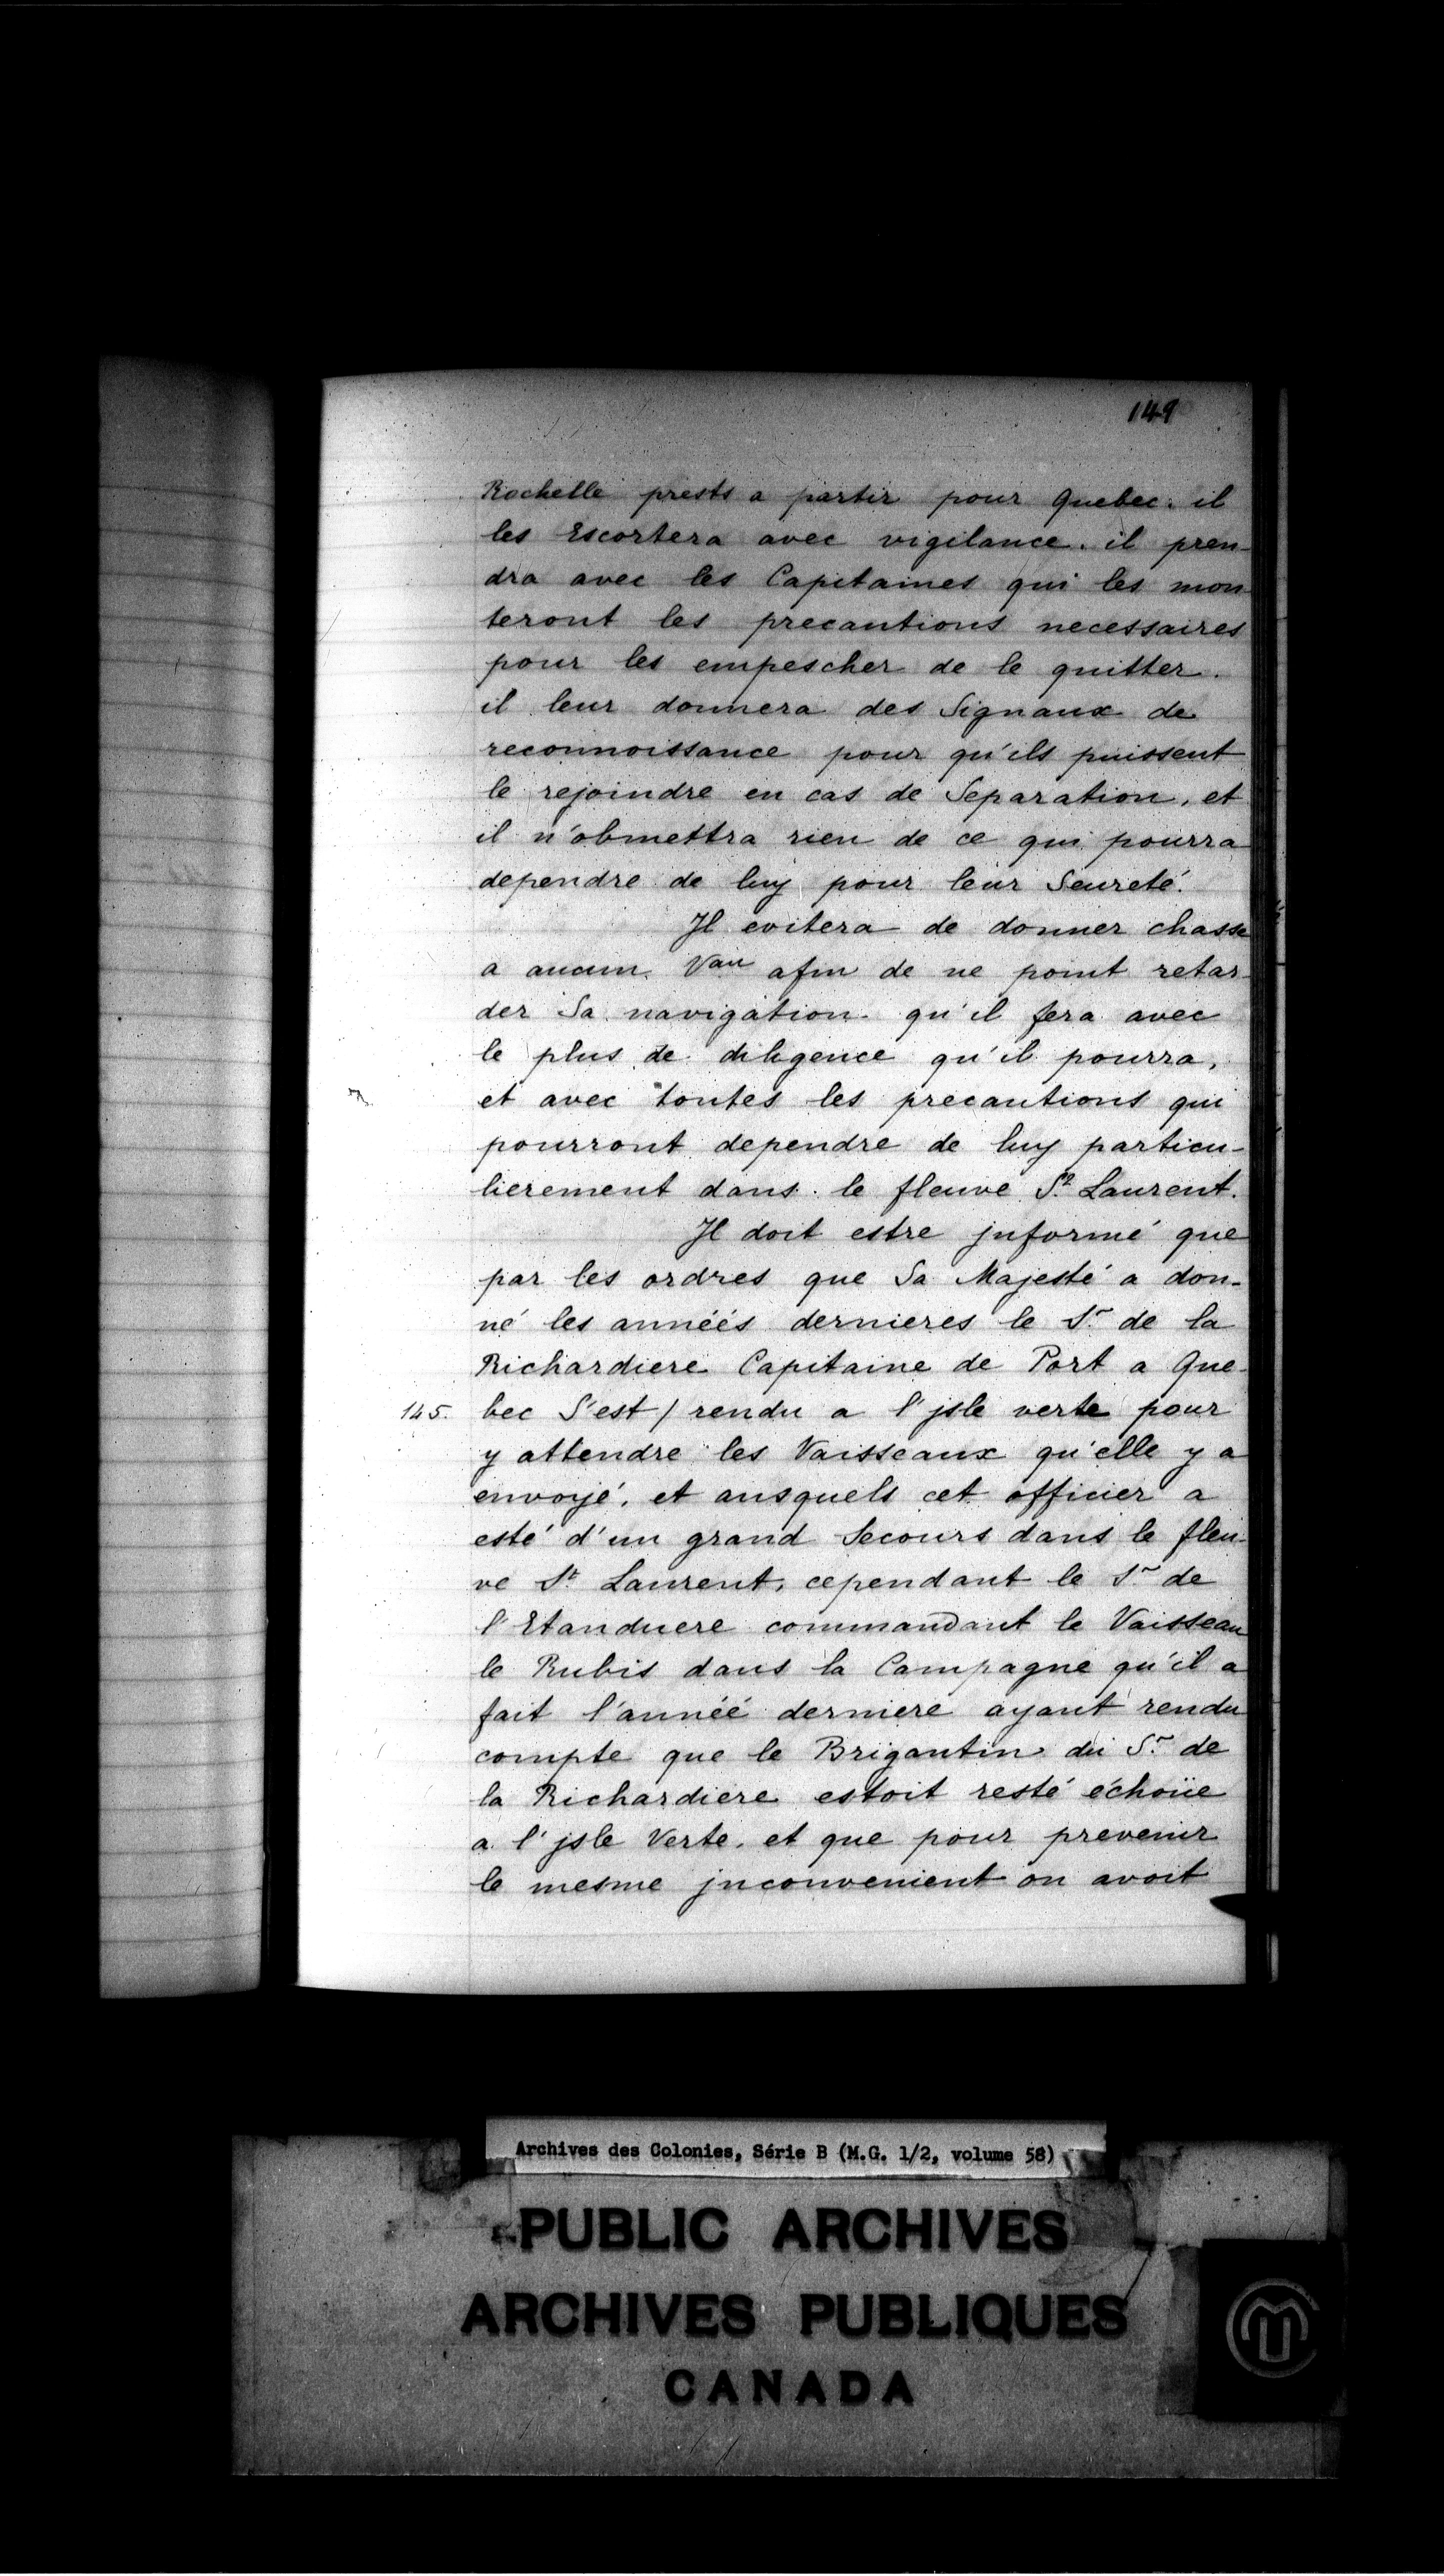 149
Rochelle prests a partir pour Quebec. il
les Escortera avec vigilance. il pren-
dra avec les Capitaines qui les mon-
teront les precautions necessaires
pour les empescher de le quitter.
il leur donnera des Signaux de
reconnoissance pour qu'ils puissent
le rejoindre en cas de Separation, et
il n'obmettra rien de ce qui pourra
dependre de luy pour leur Seureté.
Jl evitera de donner chasse
a aucun Vau afin de ne point retar-
der Sa navigation qu'il fera avec
le plus de diligence qu'il pourra,
et avec toutes les precautions qui
pourront dependre de luy particu-
lierement dans le fleuve St Laurent.
Jl doit estre jnformé que
par les ordres que Sa Majesté a don-
né les annéés dernieres le Sr de la
Richardiere Capitaine de Port a Que-
145. bec S'est / rendu a l'jsle verte pour
y attendre les Vaisseaux qu'elle y a
envoyé, et ausquels cet officier a
esté d'un grand Secours dans le fleu-
ve St Laurent, cependant le Sr de
l'Etanduere commandant le Vaisseau
le Rubis dans la Campagne qu'il a
fait l'annéé derniere ayant rendu
compte que le Brigantin du Sr de
la Richardiere estoit resté échoüe
a l'jsle Verte, et que pour prevenir
le mesme jnconvenient on avoit
Archives des Colonies, Série B (M.G. 1/2, volume 58)
PUBLIC ARCHIVES
ARCHIVES PUBLIQUES
CANADA